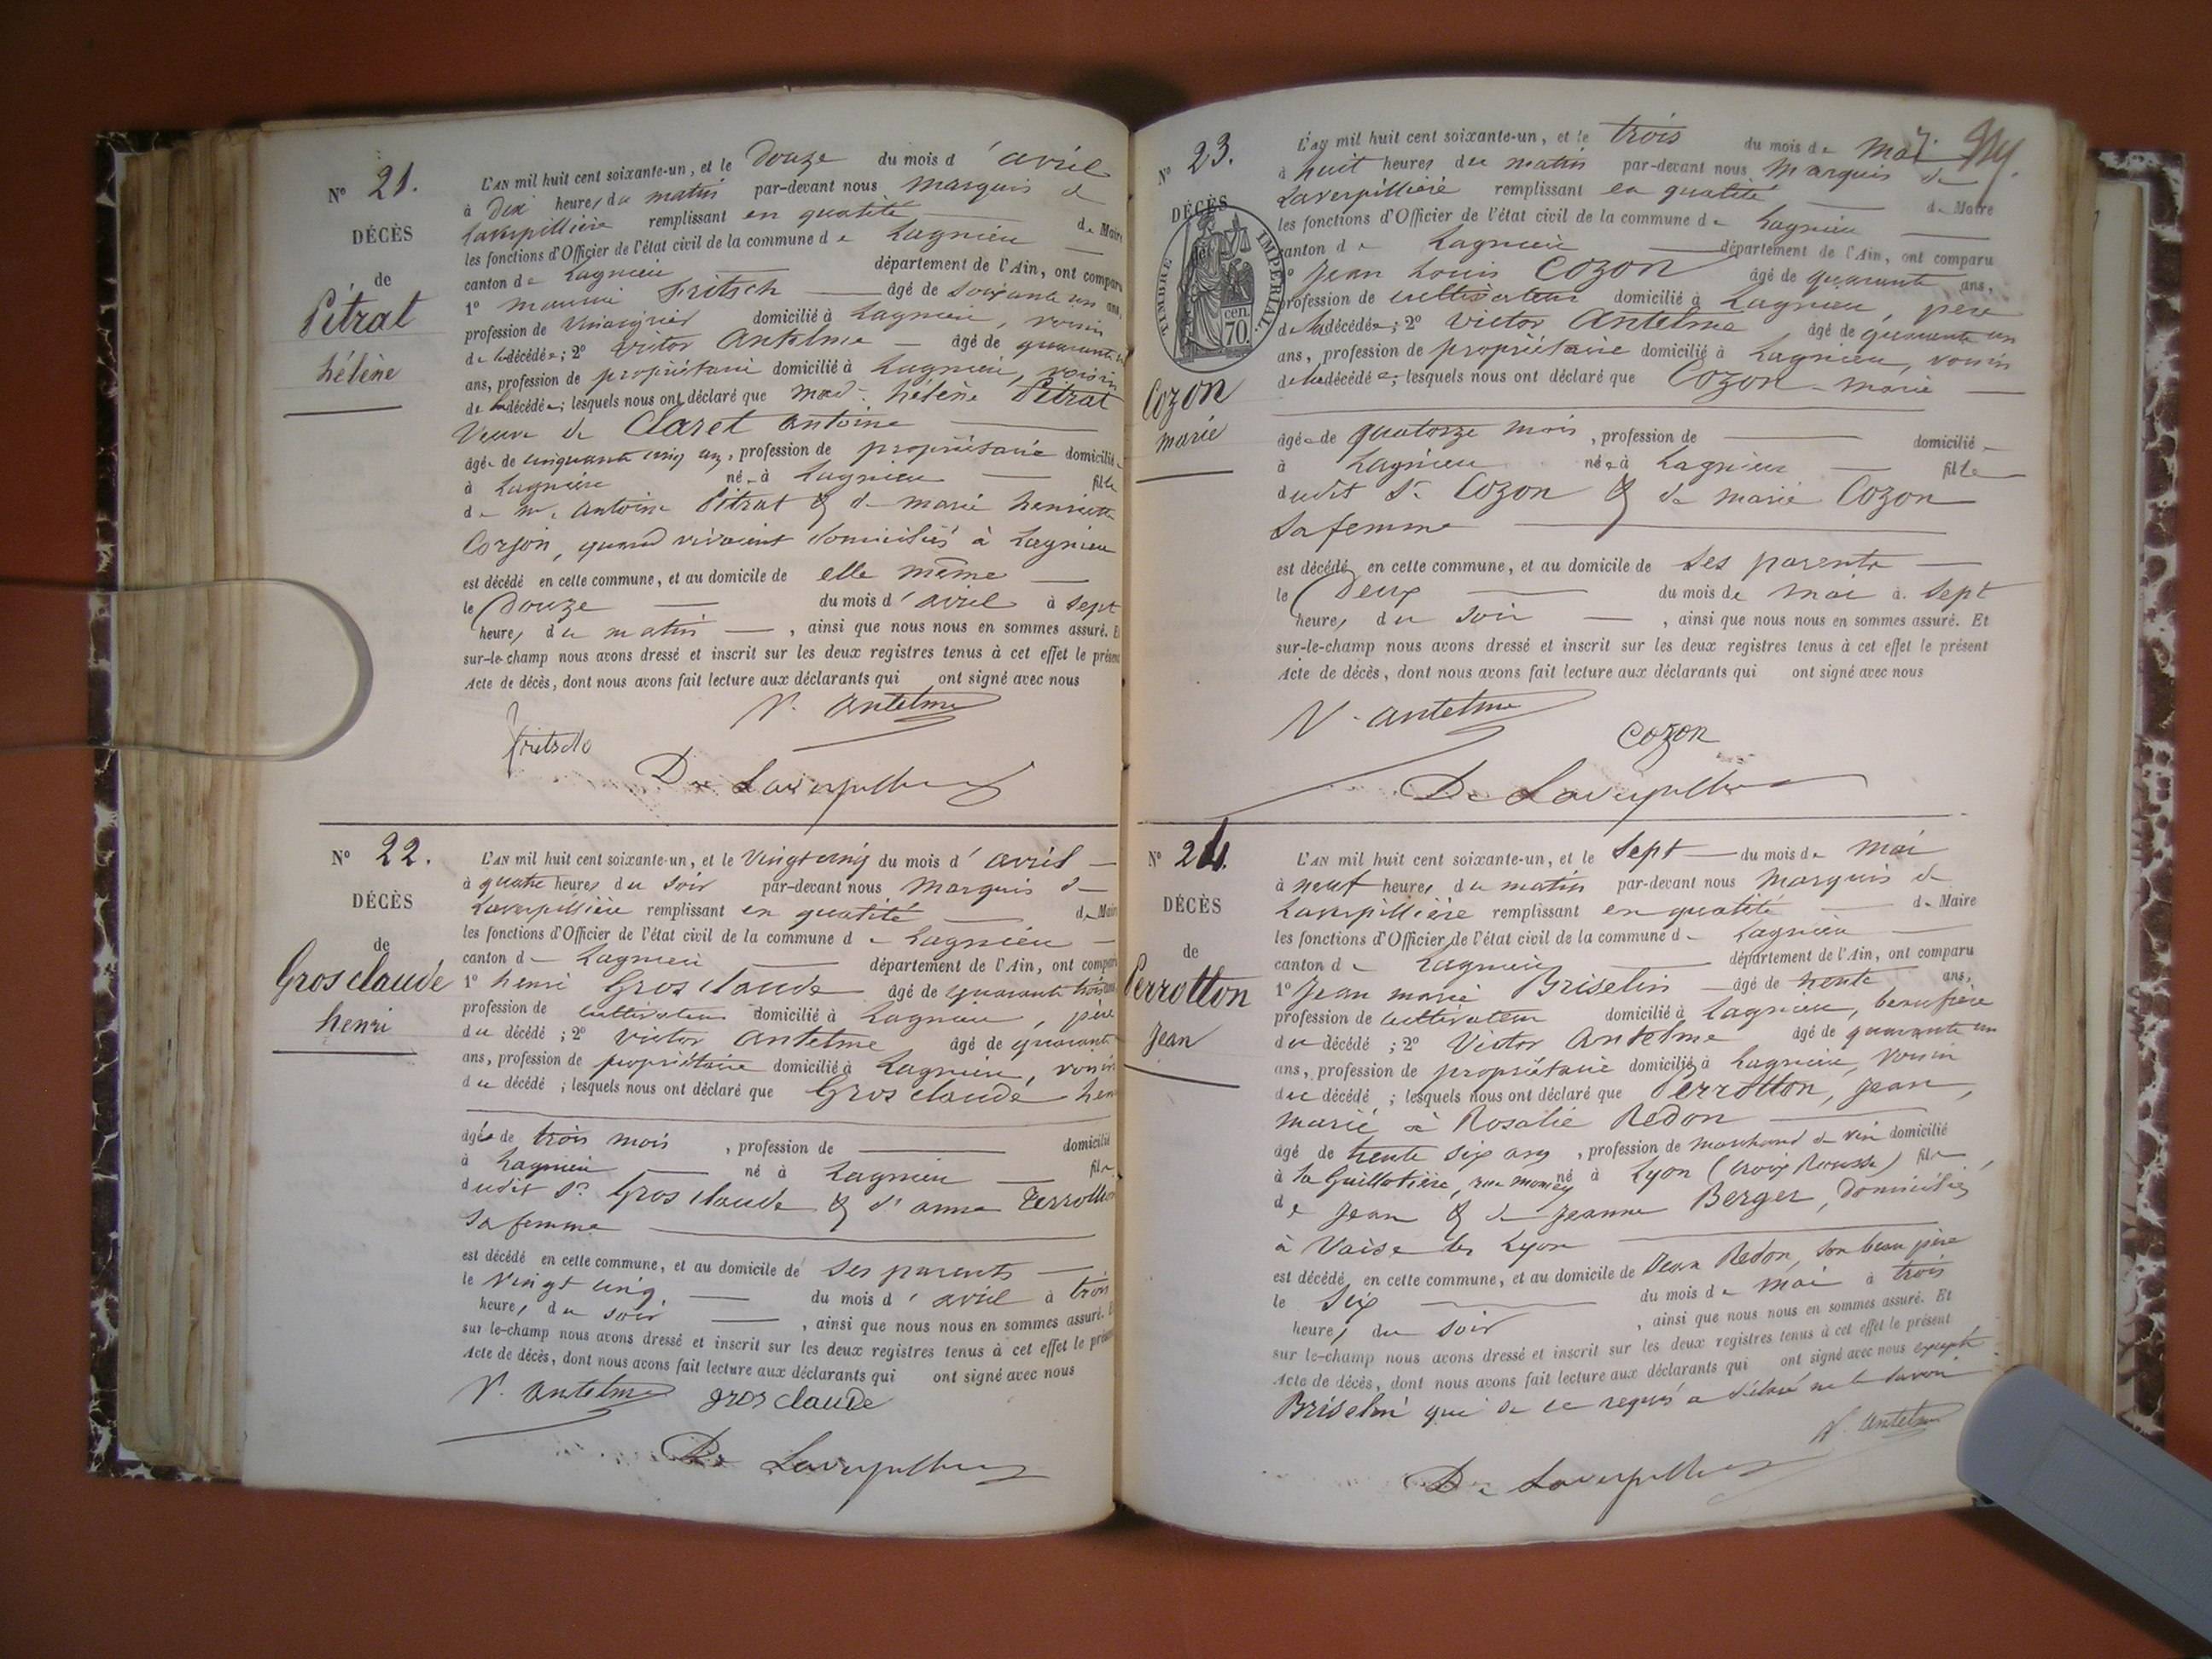 N° 21.
DÉCÈS
de
Pitrat
hélène
L'AN mil huit cent soixante-un, et le Douze du mois d'avril
à Dix heures du matin par-devant nous Marquis de
Laverpillière remplissant en qualité de Maire
les fonctions d'Officier de l'état civil de la commune de Lagnieu
canton de Lagnieu département de l'Ain, ont comparu
1° Fritsch âgé de soixante un ans,
profession de domicilié à Lagnieu, voisin
de la décédée; 2° Victor Antelme âgé de quarante un
ans, profession de propriétaire domicilié à Lagnieu, voisin
de la décédée; lesquels nous ont déclaré que mad. hélène Pitrat
Veuve de Claret antoine
âgée de cinquante cinq ans, profession de propriétaire domiciliée
à Lagnieu née à Lagnieu fille
de m. antoine Pitrat & de marie henriette
Corjon, quand vivaient domiciliés à Lagnieu
est décédé en cette commune, et au domicile de elle même
le Douze du mois d'avril à sept
heures du matin, ainsi que nous nous en sommes assuré. Et
sur-le-champ nous avons dressé et inscrit sur les deux registres tenus à cet effet le présent
Acte de décès, dont nous avons fait lecture aux déclarants qui ont signé avec nous
V. Antelme
De Laverpilliere
N° 22.
DÉCÈS
de
Gros claude
henri
L'AN mil huit cent soixante-un, et le Vingt cinq du mois d'avril
à quatre heures du soir par-devant nous Marquis de
Laverpillière remplissant en qualité de Maire
les fonctions d'Officier de l'état civil de la commune de Lagnieu
canton de Lagnieu département de l'Ain, ont comparu
1° henri Gros claude âgé de quarante trois ans
profession de cultivateur domicilié à Lagnieu, père
du décédé; 2° victor Antelme âgé de quarante
ans, profession de propriétaire domicilié à Lagnieu, voisin
du décédé; lesquels nous ont déclaré que Gros claude henri
âgé de trois mois, profession de domicilié
à Lagnieu né à Lagnieu fils
dudit Sr. Gros claude & d'anne Perrotton
sa femme
est décédé en cette commune, et au domicile de ses parents
le vingt cinq du mois d'avril à trois
heures du soir, ainsi que nous nous en sommes assuré. Et
sur le-champ nous avons dressé et inscrit sur les deux registres tenus à cet effet le présent
Acte de décès, dont nous avons fait lecture aux déclarants qui ont signé avec nous
V. Antelme gros claude
De Laverpilliere
N° 23.
DÉCÈS
TIMBRE IMPÉRIAL
70 cen.
Cozon
marie
L'AN mil huit cent soixante-un, et le trois du mois de Mai
à huit heures du matin par-devant nous Marquis de
Laverpillière remplissant en qualité de Maire
les fonctions d'Officier de l'état civil de la commune de Lagnieu
canton de Lagnieu département de l'Ain, ont comparu
1° Jean Louis Cozon âgé de quarante ans,
profession de cultivateur domicilié à Lagnieu, père
de la décédée; 2° Victor Antelme, âgé de quarante un
ans, profession de propriétaire domicilié à Lagnieu, voisin
de la décédée; lesquels nous ont déclaré que Cozon marie
âgée de quatorze mois, profession de domicilié
à Lagnieu née à Lagnieu fille
dudit Sr. Cozon & de marie Cozon
sa femme
est décédé en cette commune, et au domicile de ses parents
le Deux du mois de mai à sept
heures du soir, ainsi que nous nous en sommes assuré. Et
sur-le-champ nous avons dressé et inscrit sur les deux registres tenus à cet effet le présent
Acte de décès, dont nous avons fait lecture aux déclarants qui ont signé avec nous
V. antelme
Cozon
De Laverpilliere
N° 24.
DÉCÈS
de
Perrotton
Jean
L'AN mil huit cent soixante-un, et le Sept du mois de Mai
à neuf heures du matin par-devant nous Marquis de
Laverpillière remplissant en qualité de Maire
les fonctions d'Officier de l'état civil de la commune de Lagnieu
canton de Lagnieu département de l'Ain, ont comparu
1° Jean marie Briselin âgé de trente ans,
profession de cultivateur domicilié à Lagnieu, beau frère
du décédé; 2° Victor Antelme âgé de quarante un
ans, profession de propriétaire domicilié à Lagnieu, voisin
du décédé; lesquels nous ont déclaré que Perrotton, Jean,
marié à Rosalie Redon
âgé de trente six ans, profession de marchand de vin domicilié
à la Guillotière, rue Moncey né à Lyon (Croix Rousse) fils
de Jean & de Jeanne Berger, domiciliés
à Vaise les Lyon
est décédé en cette commune, et au domicile de Jean Redon, son beau père
le Six du mois de mai à trois
heures du soir, ainsi que nous nous en sommes assuré. Et
sur le-champ nous avons dressé et inscrit sur les deux registres tenus à cet effet le présent
Acte de décès, dont nous avons fait lecture aux déclarants qui ont signé avec nous excepté
Briselin qui de ce requis a déclaré ne le savoir
V. Antelme
De Laverpilliere